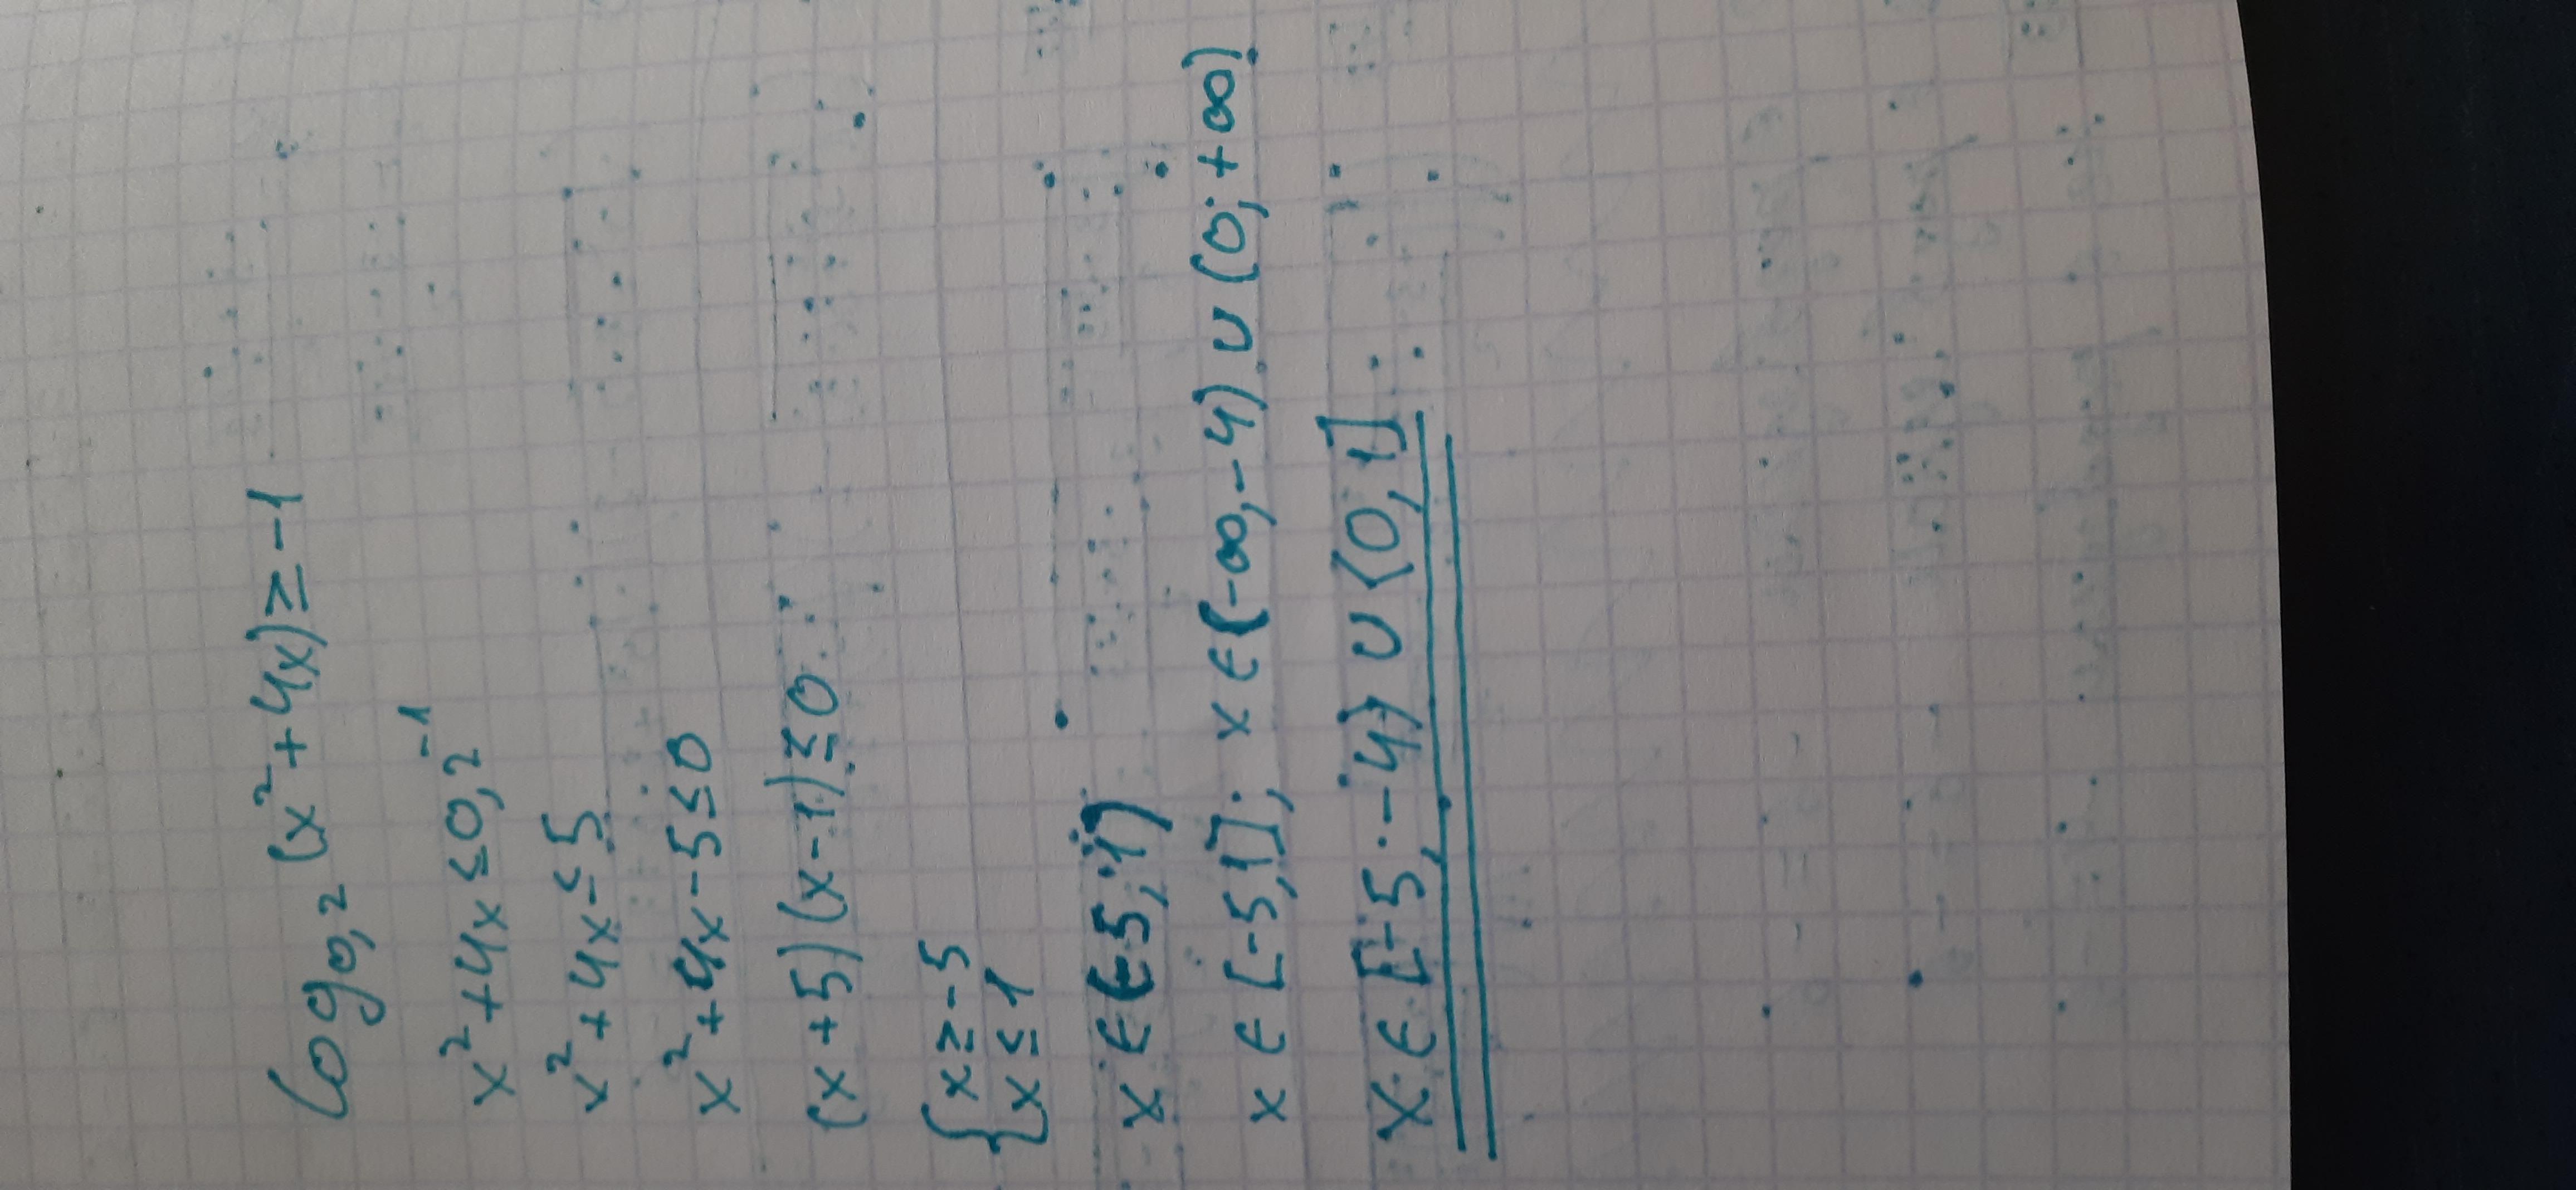 log₀,₂ (x²+4x) ≥ -1
x²+4x ≤ 0,2⁻¹
x²+4x ≤ 5
x²+4x-5 ≤ 0
(x+5)(x-1) ≤ 0
{x ≥ -5
{x ≤ 1
x ∈ (-5; 1)
x ∈ [-5,1]; x ∈ (-∞,-4) ∪ (0; +∞)
x ∈ [-5,-4) ∪ (0,1]